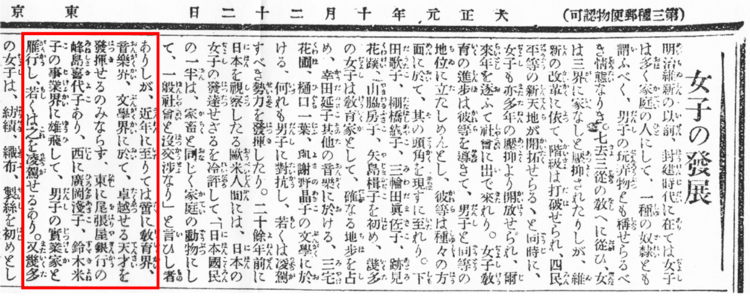 (第三種郵便物認可) 大正元年十月二十二日 東京
女子の發展
明治維新の以前、封建時代に在ては女子
は多く家庭の人にして、一種の奴隷とも
謂ふべく、男子の玩弄物とも稱せらるべ
き情態なりき。七去三從の敎に從ひ、女
は三界に家なしと壓抑されたりしが、維
新の改革に依て、階級は打破せられ、四民
平等の新天地が開拓せらるゝと同時に、
女子も亦多年の壓抑より開放せられ、爾
來年を逐ふて社會に出で來れり。女子敎
育の進步は彼等を導きて、男子と同等の
地位に立たしめんとし、彼等は種々の方
面に於て、其の頭角を現すに至れり。下
田歌子、棚橋絢子、三輪田眞佐子、跡見
花蹊、山脇房子、矢島楫子を初め、幾多
の女子は敎育家として、確なる地步を占
め、幸田延子其他の音樂に於ける、三宅
花圃、樋口一葉、與謝野晶子の文學に於
ける、何れも男子に對抗し、若くは凌駕
すべき勢力を發揮したり。二十餘年前に
日本を視察したる歐米人間には、日本の
女子の發達せざるを冷評して「日本國民
の一半は、家畜と同じく家庭の動物にし
て、一般社會と沒交渉なり」と言ひし者
ありしが、近年に至りては啻に敎育界、
音樂界、文學界に於て、卓越せる天才を
發揮せるのみならず、東に尾張屋銀行の
峰島喜代子あり、西に廣岡淺子、鈴木米
子の事業界に雄飛して、男子の實業家と
雁行し、若くは之を凌駕せるあり。又幾多
の女子は、紡績、織布、製絲を初めとし